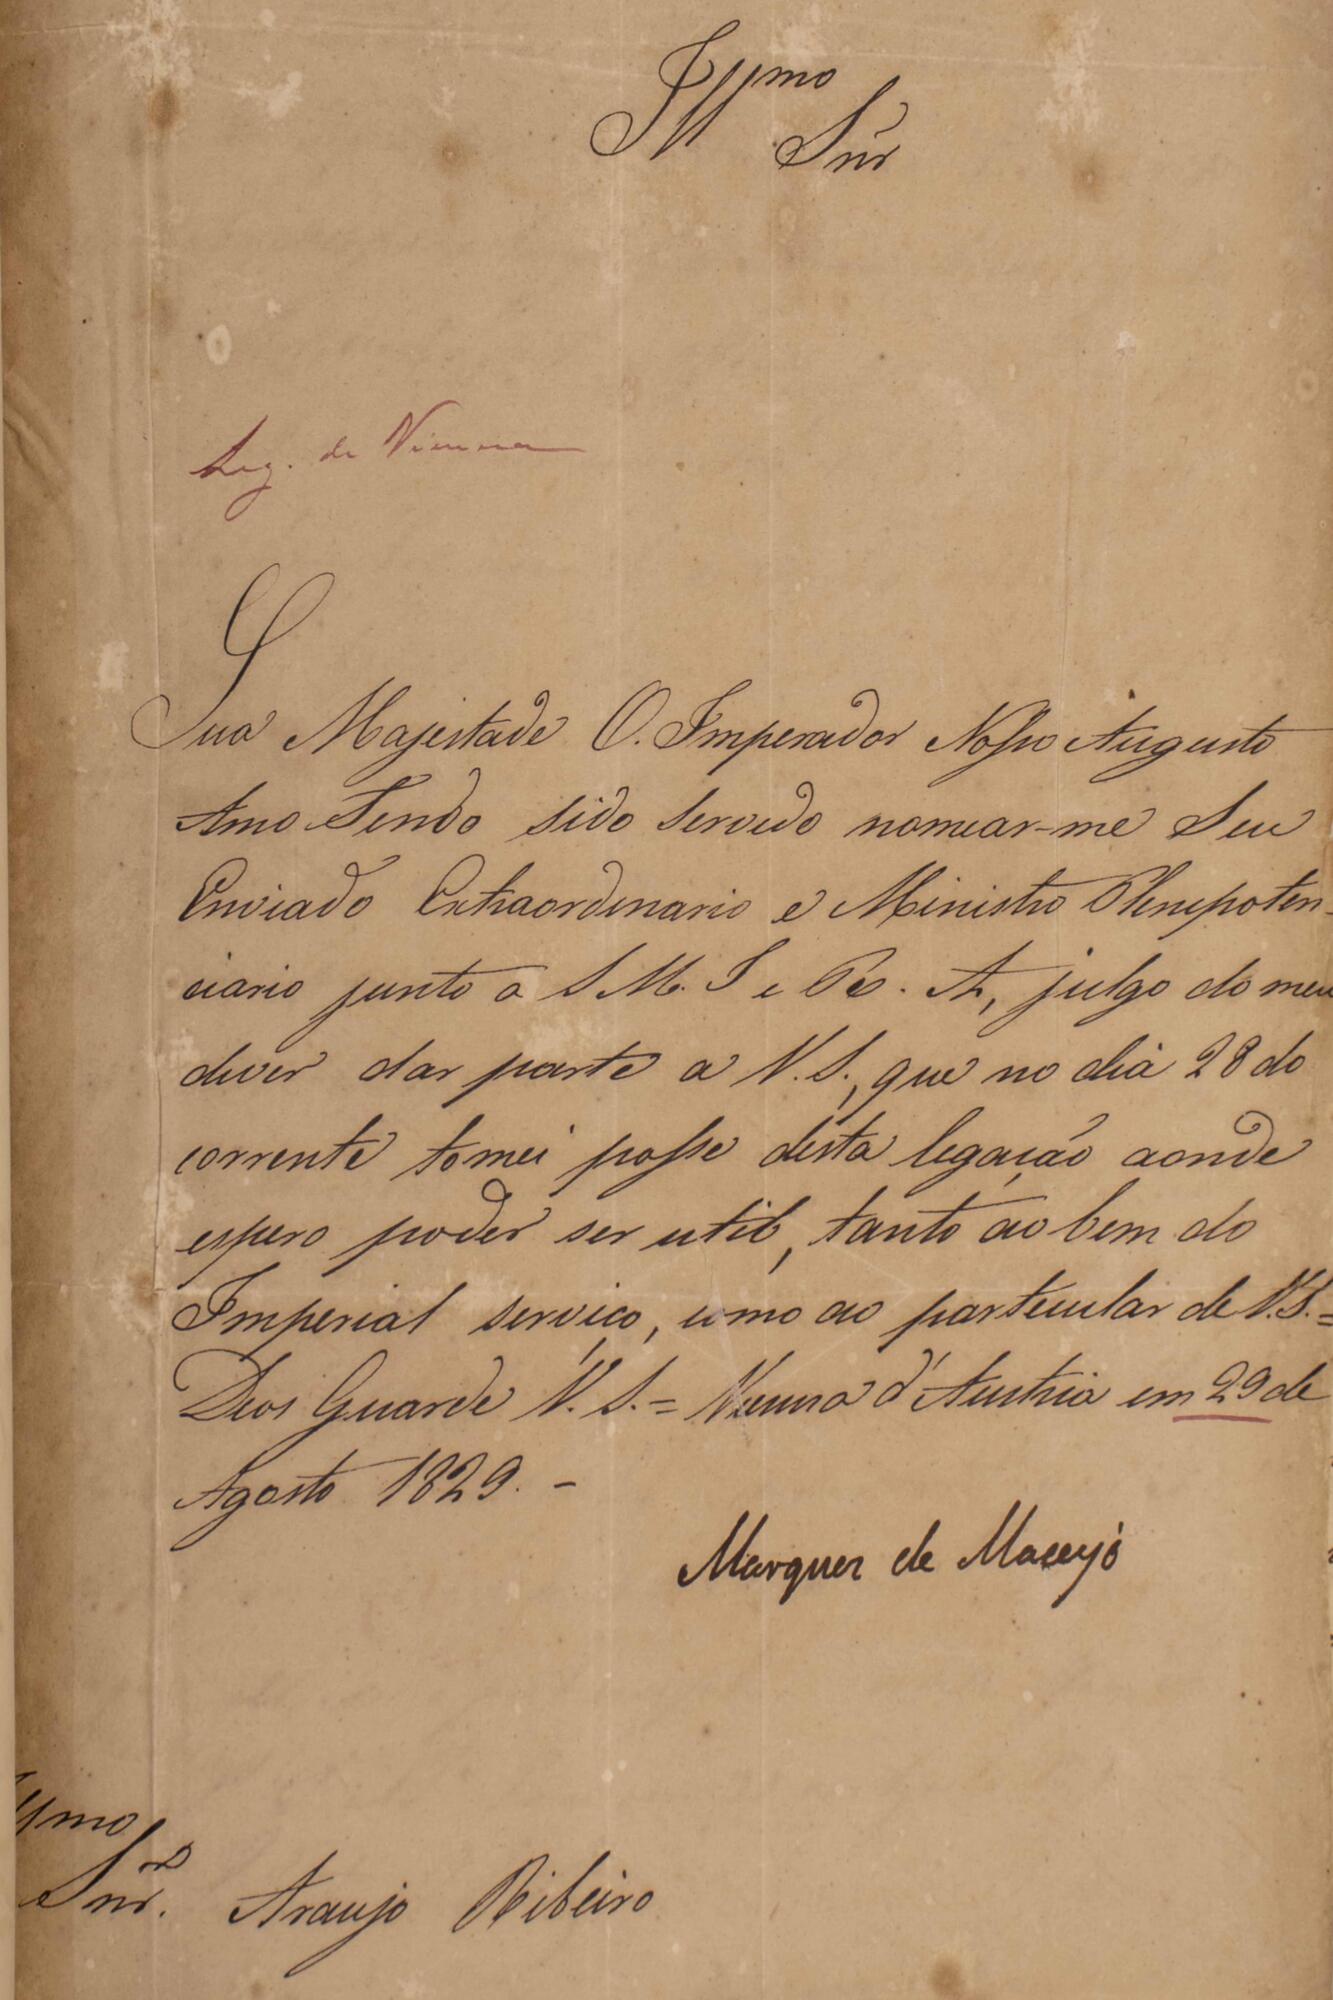 Illmo
Snr
Leg. de Vienna
Sua Majestade O. Imperador Nosso Augusto
Amo Tendo sido servido nomear-me Seu
Enviado Extraordinario e Ministro Plenipoten-
ciario junto a S M. I e R. A, julgo do meu
dever dar parte a V. S., que no dia 28 do
corrente tomei posse desta legação aonde
espero poder ser util, tanto ao bem do
Imperial serviço, como ao particular de V. S. =
Deos Guarde V. S. = Vienna d'Austria em 29 de
Agosto 1829. -
Marquez de Maceyó
Illmo
Snr. Araujo Ribeiro